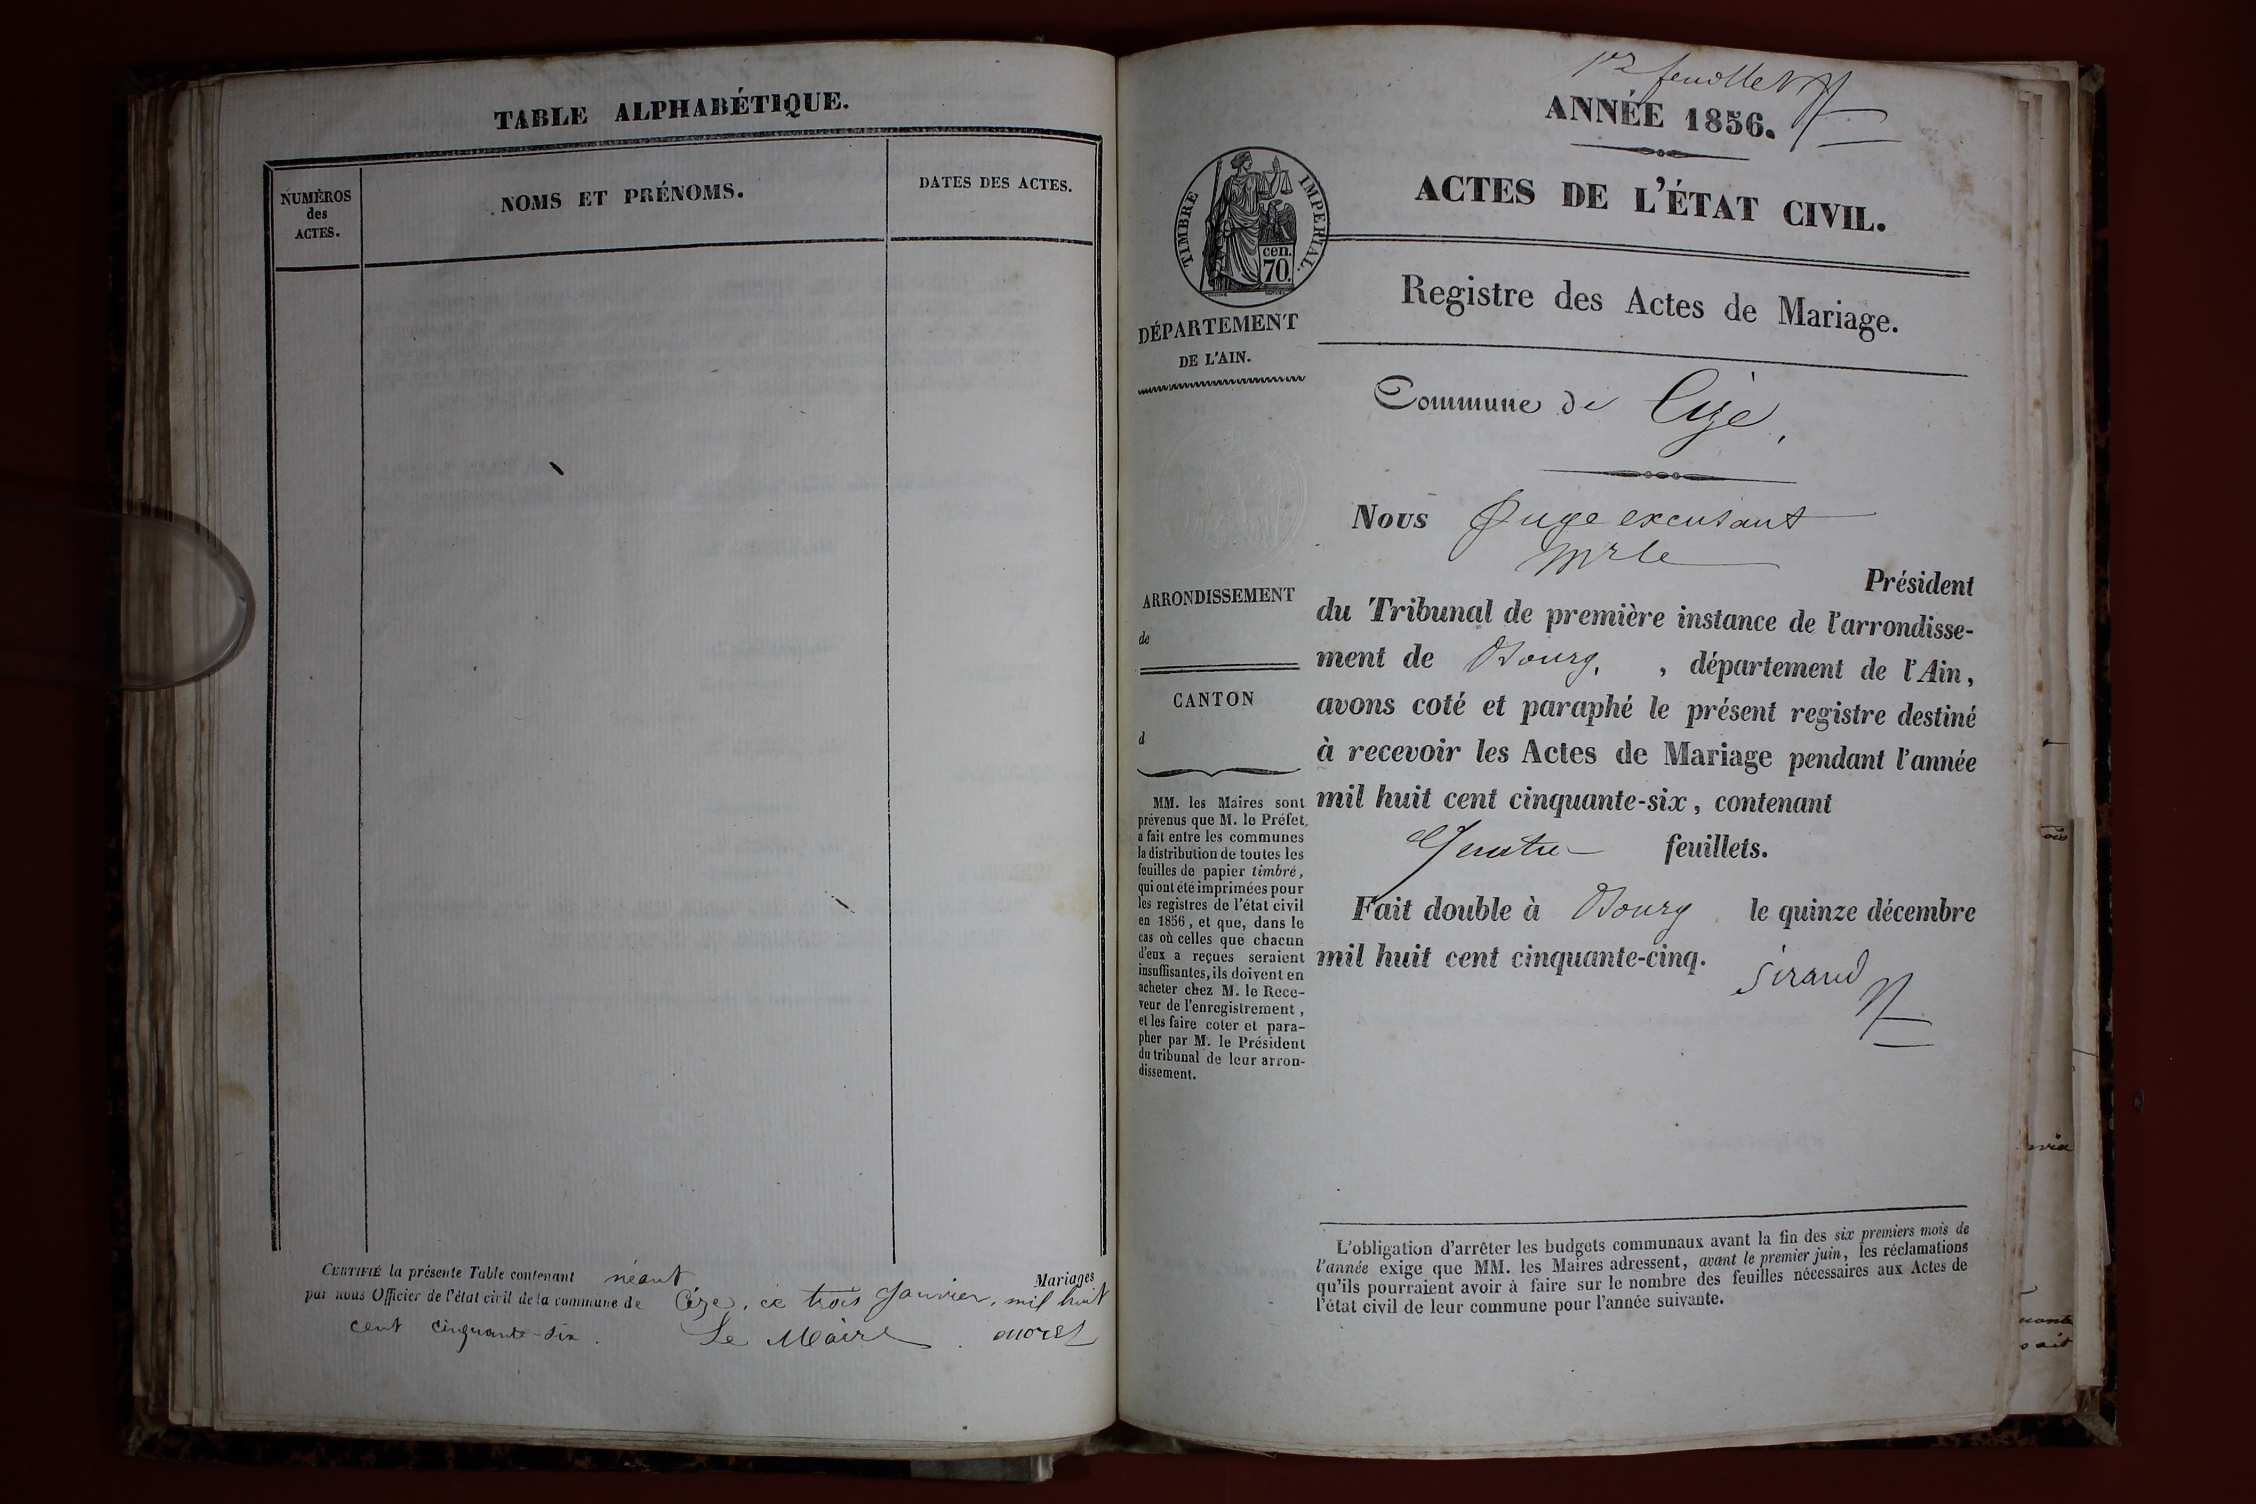 TABLE ALPHABÉTIQUE.
NUMÉROS
des
ACTES.
NOMS ET PRÉNOMS.
DATES DES ACTES.
CERTIFIÉ la présente Table contenant néant Mariages
par nous Officier de l'état civil de la commune de Cize, ce trois Janvier, mil huit
cent cinquante-six. Le Maire Moret
1er feuillet
ANNÉE 1856.
ACTES DE L'ÉTAT CIVIL.
TIMBRE IMPÉRIAL.
cen.
70.
Registre des Actes de Mariage.
DÉPARTEMENT
DE L'AIN.
Commune de Cize,
Nous Juge excusant
Mr le
Président
du Tribunal de première instance de l'arrondisse-
ment de Bourg, , département de l'Ain,
avons coté et paraphé le présent registre destiné
à recevoir les Actes de Mariage pendant l'année
mil huit cent cinquante-six, contenant
feuillets.
Fait double à Bourg le quinze décembre
mil huit cent cinquante-cinq.
Sirand
ARRONDISSEMENT
de
CANTON
d
MM. les Maires sont
prévenus que M. le Préfet,
a fait entre les communes
la distribution de toutes les
feuilles de papier timbré,
qui ont été imprimées pour
les registres de l'état civil
en 1856, et que, dans le
cas où celles que chacun
d'eux a reçues seraient
insuffisantes, ils doivent en
acheter chez M. le Rece-
veur de l'enregistrement,
et les faire coter et para-
pher par M. le Président
du tribunal de leur arron-
dissement.
L'obligation d'arrêter les budgets communaux avant la fin des six premiers mois de
l'année exige que MM. les Maires adressent, avant le premier juin, les réclamations
qu'ils pourraient avoir à faire sur le nombre des feuilles nécessaires aux Actes de
l'état civil de leur commune pour l'année suivante.